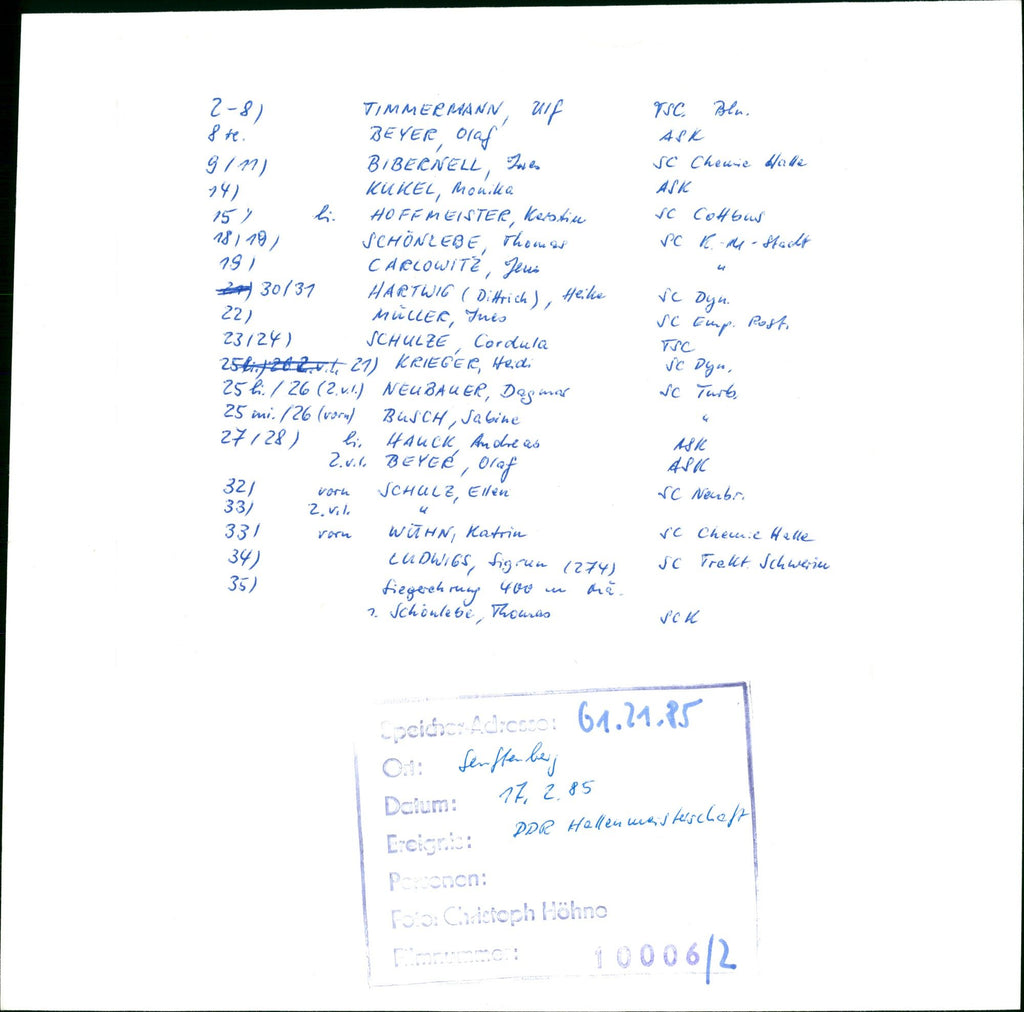 2-8) TIMMERMANN, Ulf TSC. Bln.
8 re. BEYER, Olaf ASK
9/11) BIBERNELL, Ines SC Chemie Halle
14) KUKEL, Monika ASK
15) li. HOFFMEISTER, Kerstin SC Cottbus
18/19) SCHÖNLEBE, Thomas SC K.-M.-Stadt
19) CARLOWITZ, Jens "
21) 30/31 HARTWIG (Dittrich), Heike SC Dyn.
22) MÜLLER, Ines SC Emp. Rost.
23/24) SCHULZE, Cordula TSC
25 li.) 26 2.v.l. 21) KRIEGER, Hedi SC Dyn.
25 li./26 (2.v.l.) NEUBAUER, Dagmar SC Turb.
25 mi./26 (vorn) BUSCH, Sabine "
27/28) li. HAUCK, Andreas ASK
2.v.l. BEYER, Olaf ASK
32) vorn SCHULZ, Ellen SC Neubr.
33) 2.v.l. "
33) vorn WÜHN, Katrin SC Chemie Halle
34) LUDWIGS, Sigrun (274) SC Trakt. Schwerin
35) Siegerehrung 400 m Mä.
r. Schönlebe, Thomas SCK
Speicher-Adresse: G1.21.85
Ort: Senftenberg
Datum: 17. 2. 85
Ereignis: DDR Hallenmeisterschaft
Personen:
Foto: Christoph Höhne
Filmnummer: 10006/2